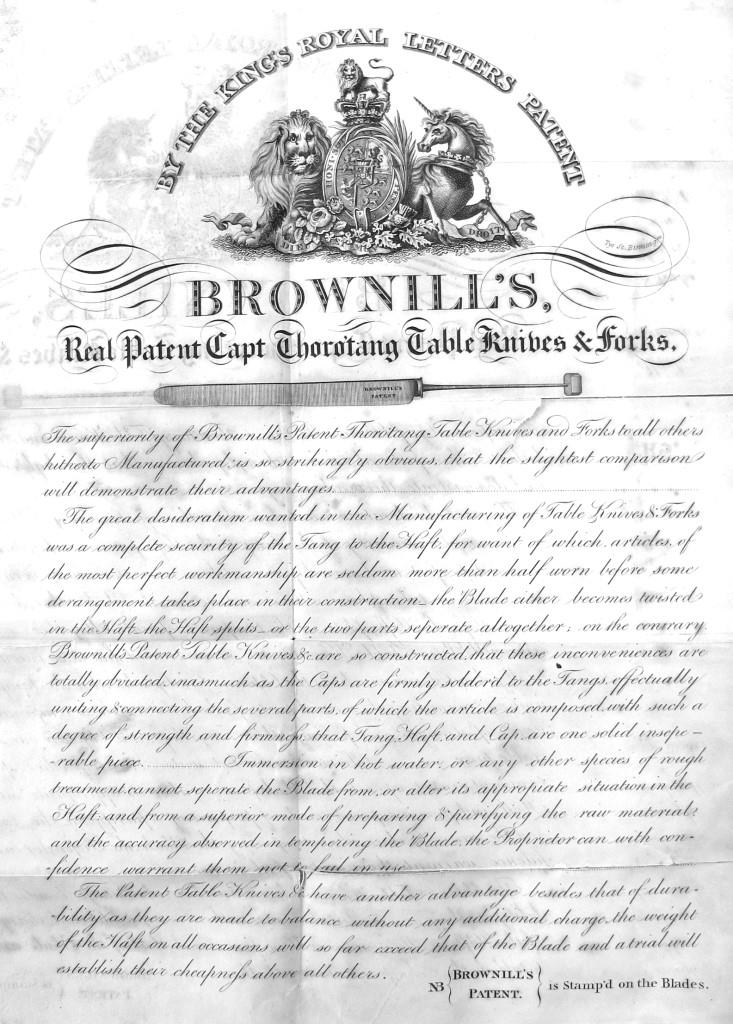 BY THE KING'S ROYAL LETTERS PATENT
HONI S
DIEU ET
DROIT
BROWNILL'S,
Real Patent Capt Thorotang Table Knives & Forks.
BROWNILL'S
PATENT
The superiority of Brownill's Patent Thorotang Table Knives and Forks to all others
hitherto Manufactured, is so strikingly obvious, that the slightest comparison
will demonstrate their advantages.
The great desideratum wanted in the Manufacturing of Table Knives & Forks
was a complete security of the Tang to the Haft, for want of which, articles, of
the most perfect workmanship are seldom more than half worn before some
derangement takes place in their construction_the Blade either becomes twisted
in the Haft_the Haft splits_or the two parts seperate altogether; on the contrary
Brownill's Patent Table Knives, &c. are so constructed, that these inconveniences are
totally obviated, inasmuch as the Caps are firmly solder'd to the Tangs, effectually
uniting & connecting the several parts, of which the article is composed, with such a
degree of strength and firmness, that Tang, Haft, and Cap, are one solid insepe-
-rable piece. Immersion in hot water, or any other species of rough
treatment, cannot seperate the Blade from, or alter its appropiate situation in the
Haft, and from a superior mode of preparing & purifying the raw material,
and the accuracy observed in tempering the Blade, the Proprietor can with con-
-fidence warrant them not to fail in use
The Patent Table Knives &c have another advantage besides that of dura-
-bility, as they are made to balance without any additional charge, the weight
of the Haft on all occasions will so far exceed that of the Blade and a trial will
establish their cheapness above all others.
NB BROWNILL'S PATENT. is Stamp'd on the Blades.